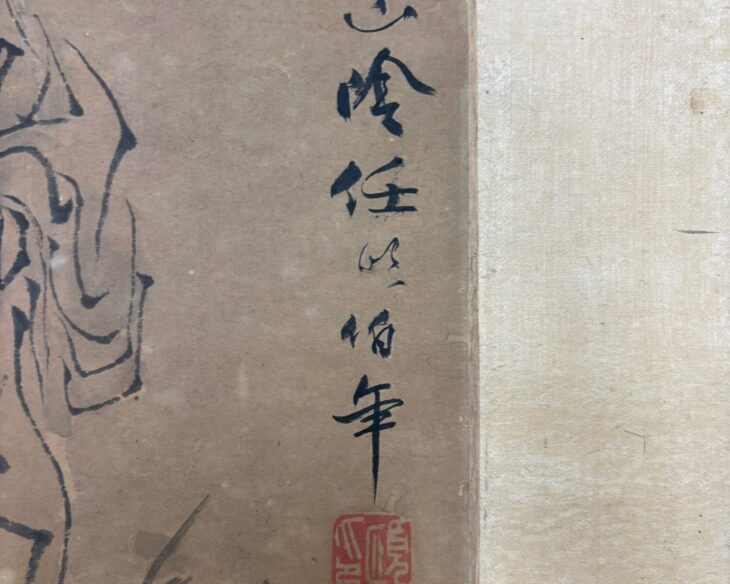 山陰任頤伯年